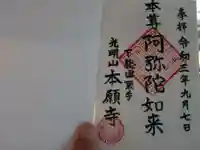 奉拝 令和三年九月七日
本尊 阿弥陀如来
光明山 本願寺